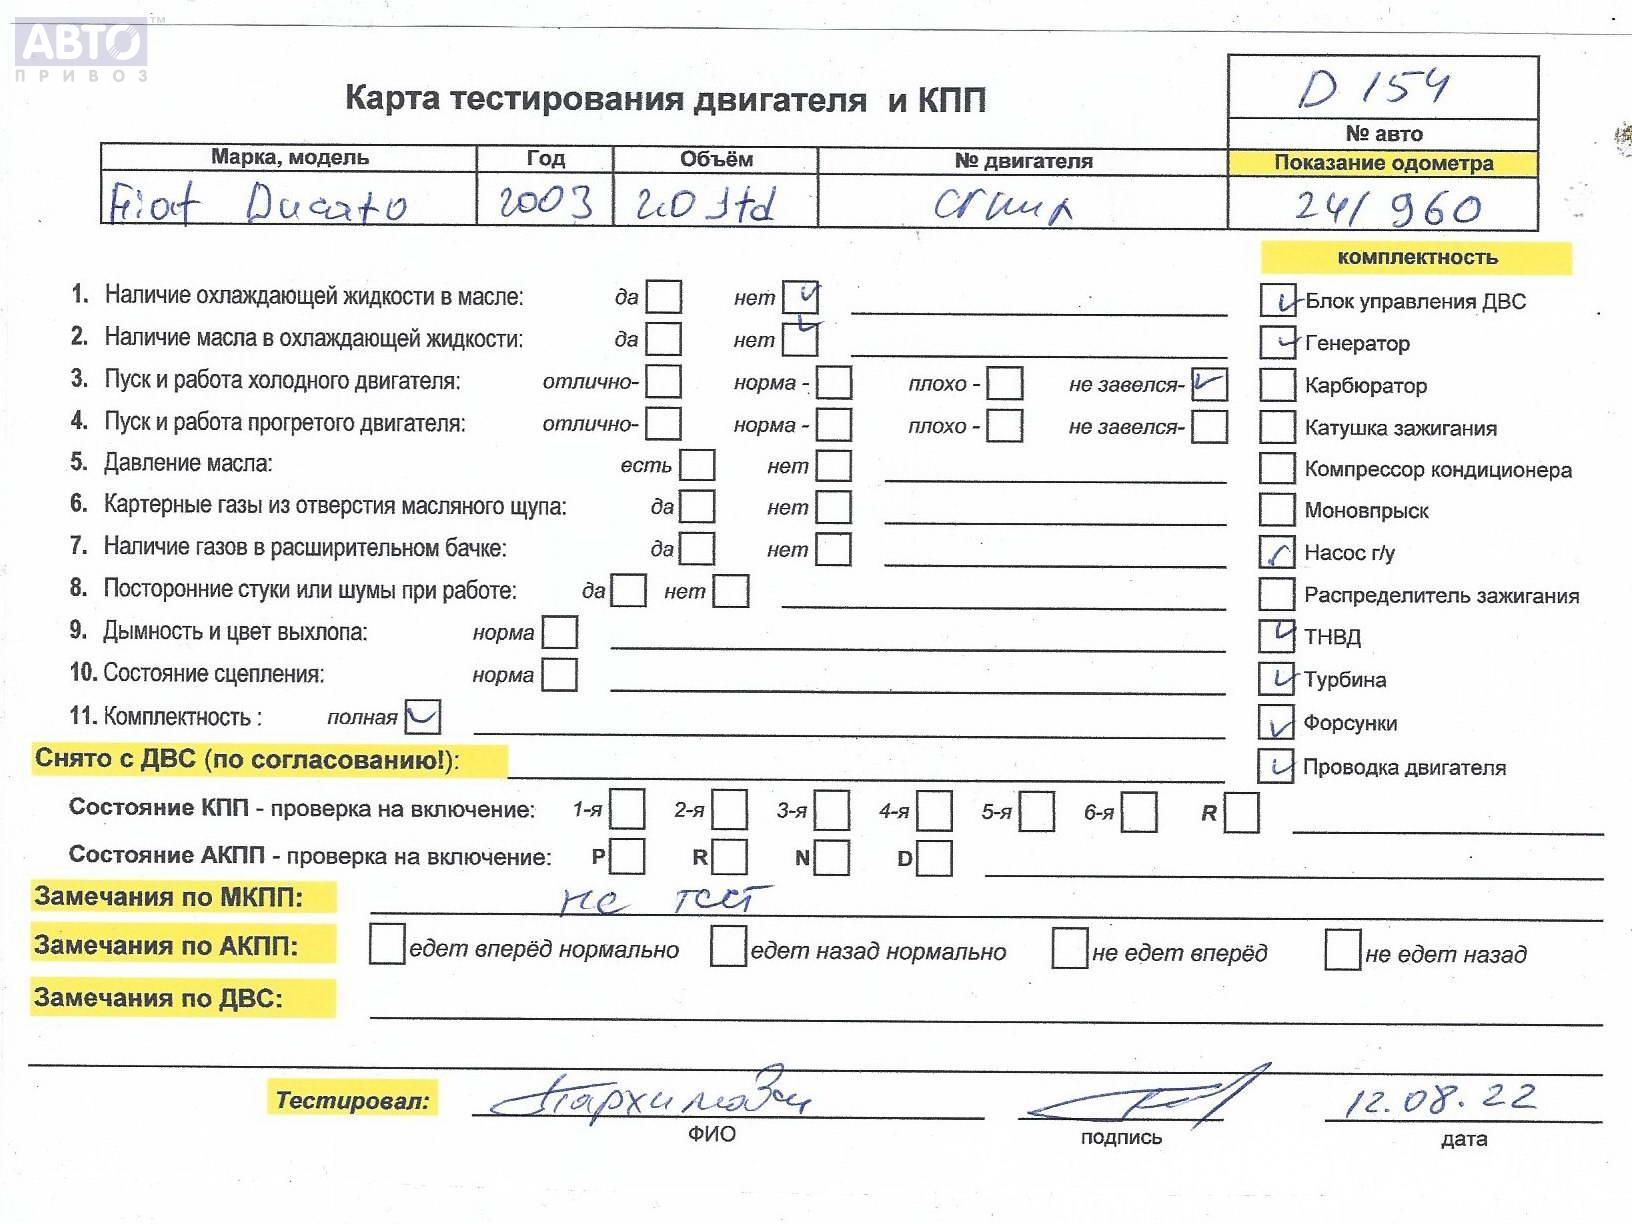 АВТО™
ПРИВОЗ
Карта тестирования двигателя и КПП
D 154
№ авто
Марка, модель Год Объём № двигателя Показание одометра
Fiat Ducato 2003 2.0 Jtd сгнил 241960
комплектность
1. Наличие охлаждающей жидкости в масле: да нет Блок управления ДВС
2. Наличие масла в охлаждающей жидкости: да нет Генератор
3. Пуск и работа холодного двигателя: отлично- норма - плохо - не завелся- Карбюратор
4. Пуск и работа прогретого двигателя: отлично- норма - плохо - не завелся- Катушка зажигания
5. Давление масла: есть нет Компрессор кондиционера
6. Картерные газы из отверстия масляного щупа: да нет Моновпрыск
7. Наличие газов в расширительном бачке: да нет Насос г/у
8. Посторонние стуки или шумы при работе: да нет Распределитель зажигания
9. Дымность и цвет выхлопа: норма ТНВД
10. Состояние сцепления: норма Турбина
11. Комплектность : полная Форсунки
Снято с ДВС (по согласованию!): Проводка двигателя
Состояние КПП - проверка на включение: 1-я 2-я 3-я 4-я 5-я 6-я R
Состояние АКПП - проверка на включение: P R N D
Замечания по МКПП: не тест
Замечания по АКПП: едет вперёд нормально едет назад нормально не едет вперёд не едет назад
Замечания по ДВС:
Тестировал: 12.08.22
ФИО подпись дата